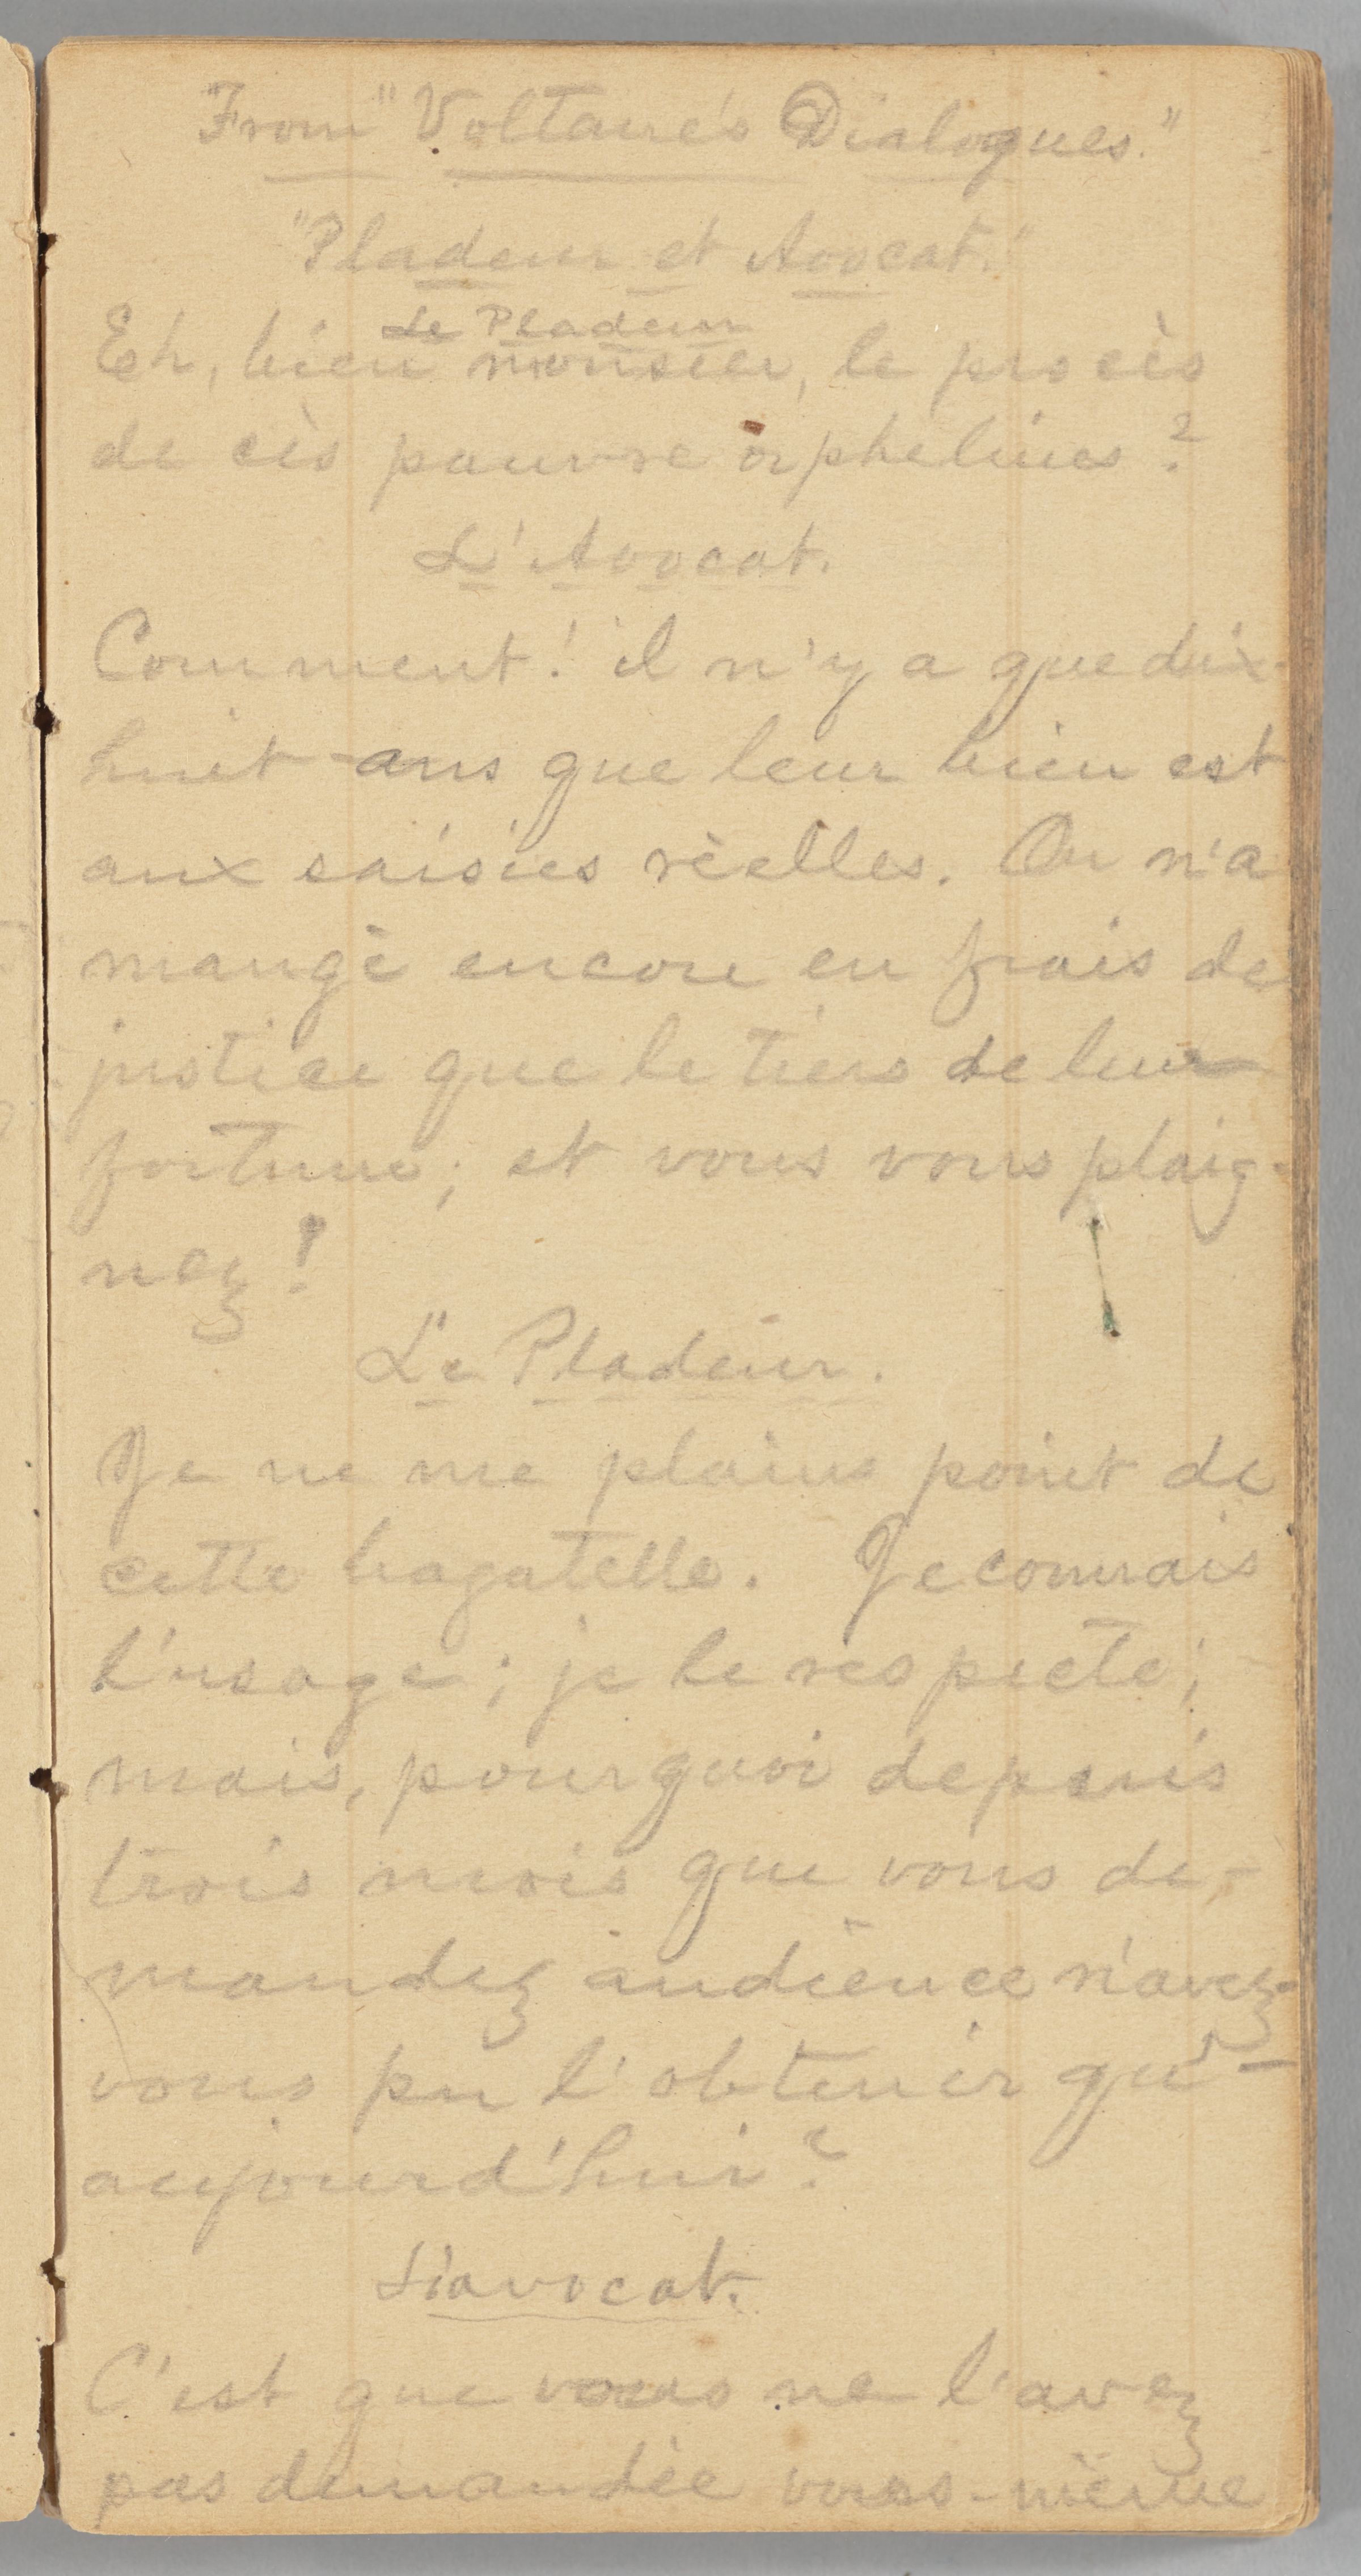 From "Voltaire's Dialogues."
"Pladeur et Avocat."
Le Pladeur
Eh, bien monsieu, le procès
de cès pauvre orphelines?
L'Avocat.
Comment! il n'y a que dix-
huit-ans que leur bien est
aux saisies réelles. On n'a
mangé encore en frais de
justice que le tiers de leur
fortune; et vous vous plaig-
nez!
Le Pladeur.
Je ne me plains point de
cette bagatelle. Je connais
l'usage; je le respecte;
mais, pourquoi depuis
trois mois que vous de-
mandez audience n'avez-
vous pu l'obtenir qu'-
aujourd'hui?
L'avocat.
C'est que vous ne l'avez
pas demandée vous-même